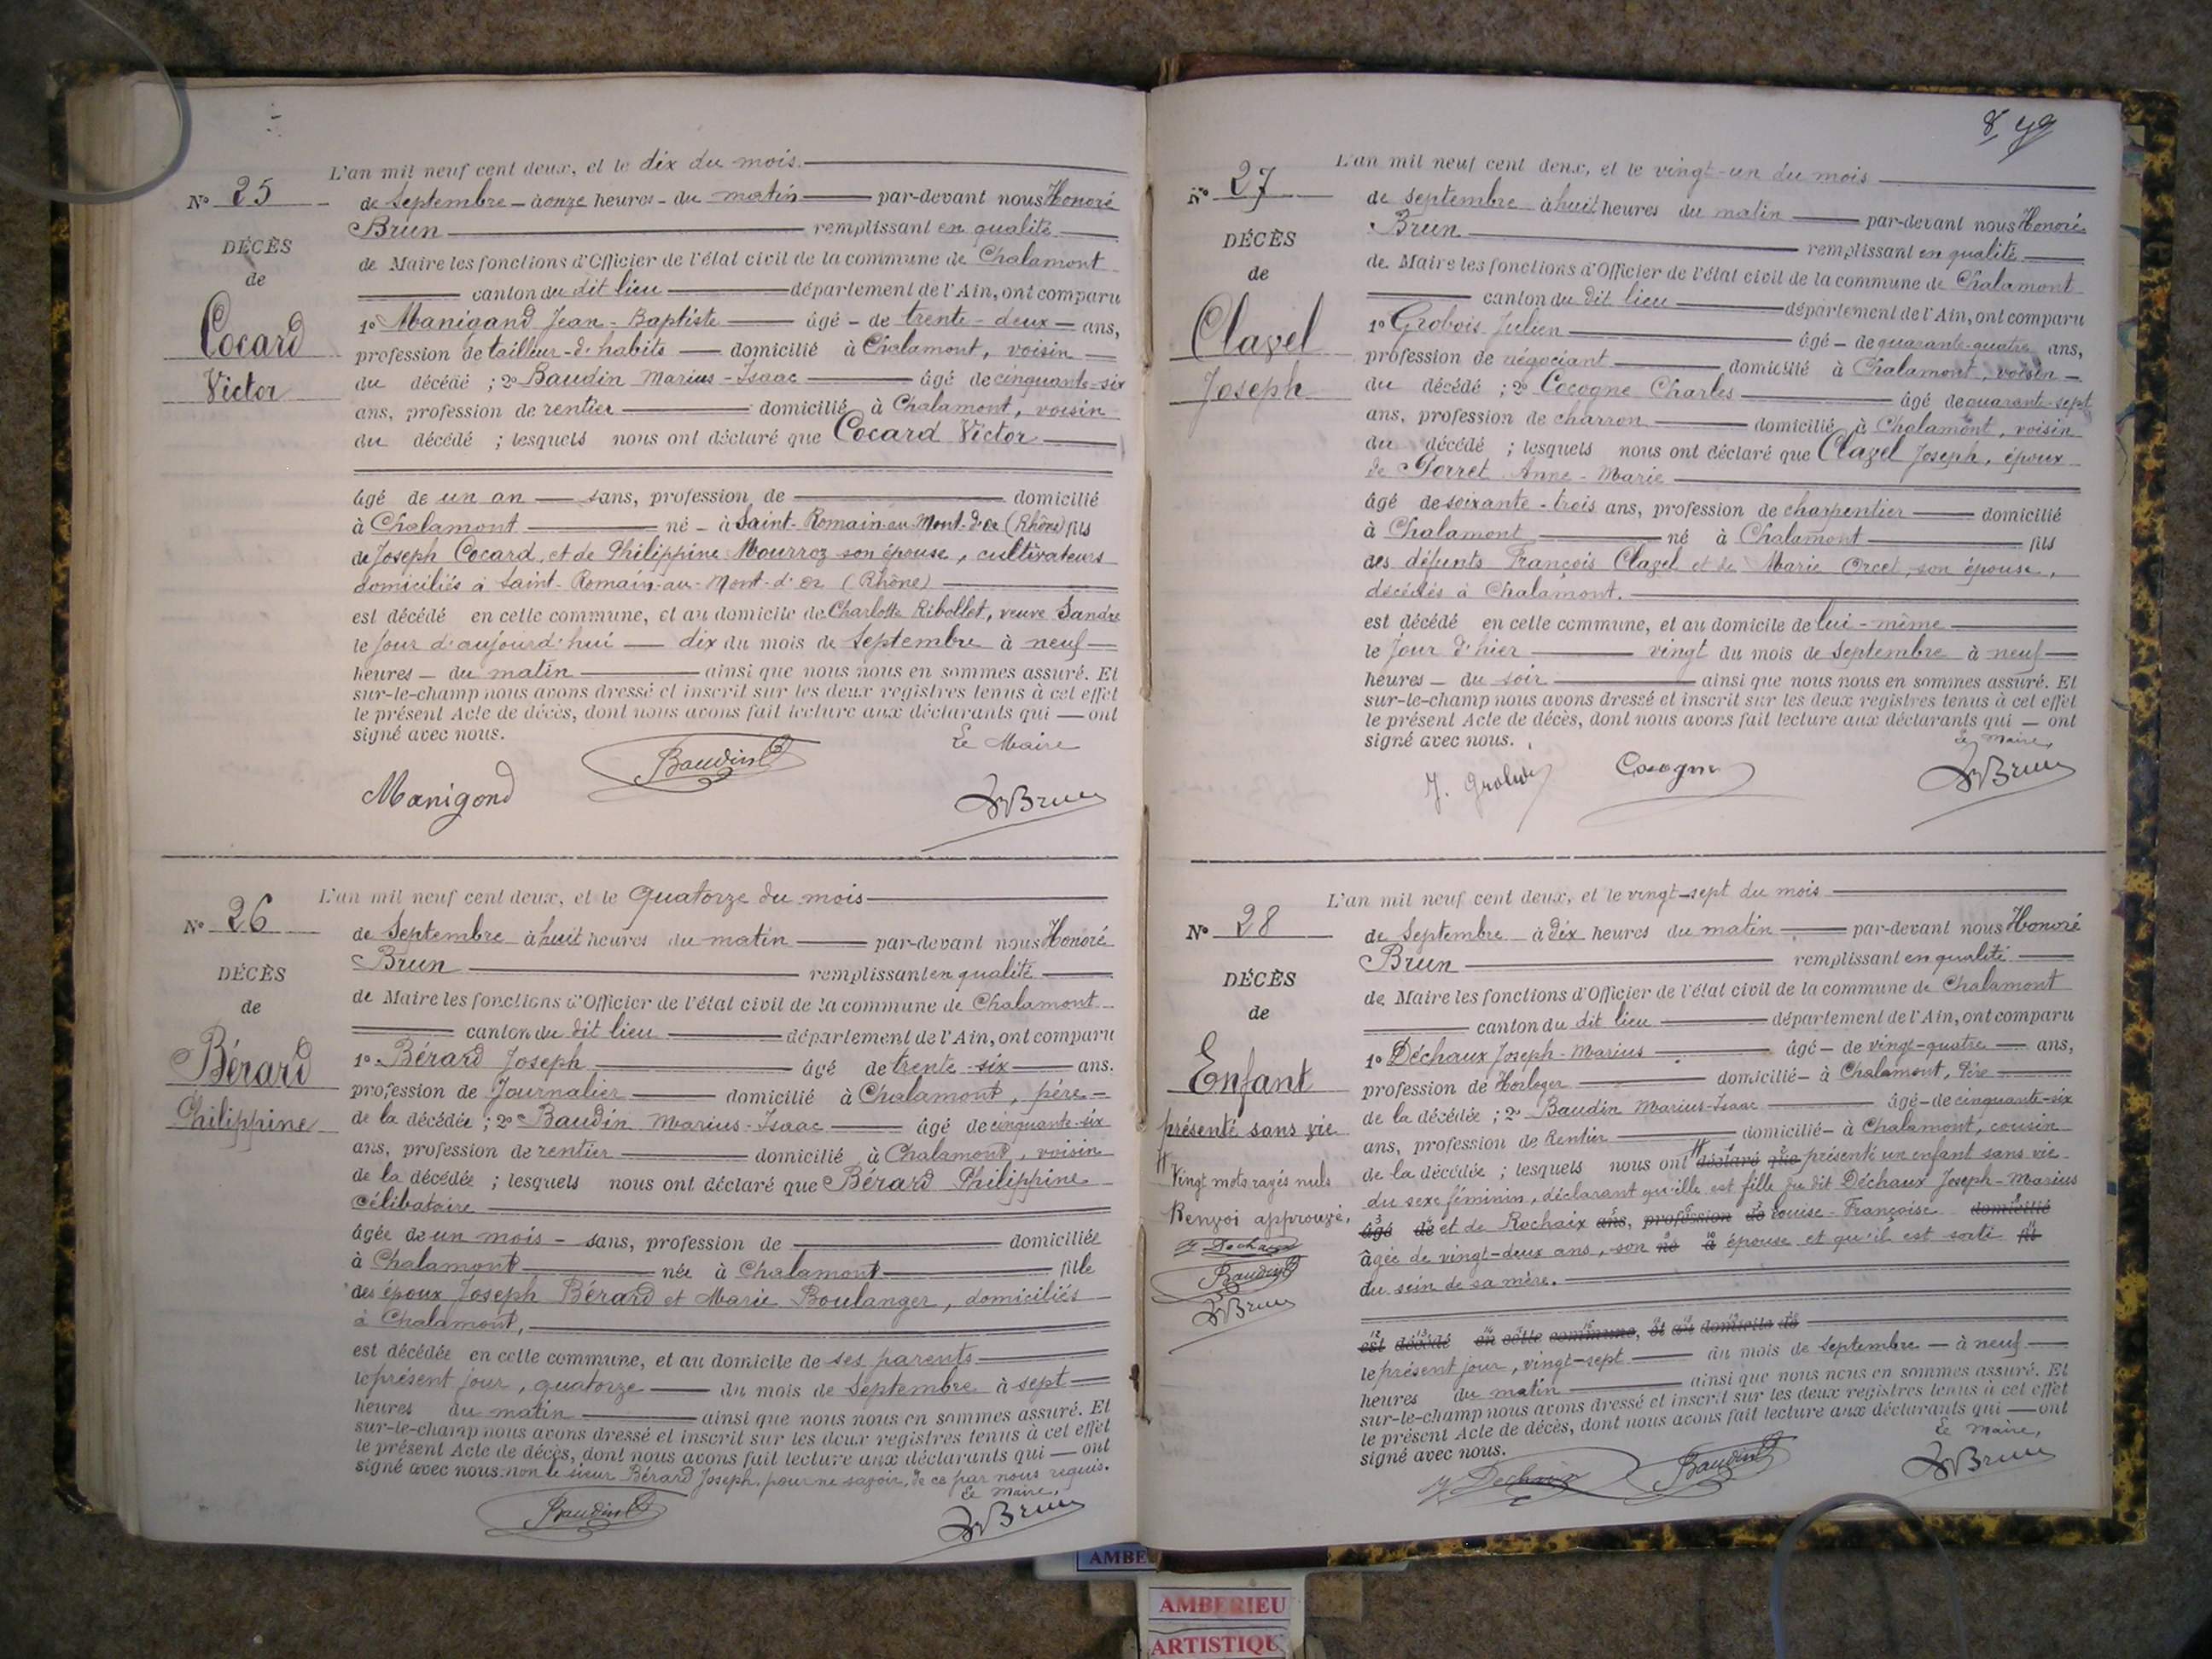 L'an mil neuf cent deux, et le dix du mois
N° 25
de Septembre à onze heures du matin par-devant nous Honoré
Brun remplissant en qualité
DÉCÈS
de Maire les fonctions d'Officier de l'état civil de la commune de Chalamont
de
canton du dit lieu département de l'Ain, ont comparu
Cocard
Victor
1° Manigand Jean-Baptiste âgé de trente-deux ans,
profession de tailleur d'habits domicilié à Chalamont, voisin
du décédé ; 2° Baudin Marius-Isaac âgé de cinquante-six
ans, profession de rentier domicilié à Chalamont, voisin
du décédé ; lesquels nous ont déclaré que Cocard Victor
âgé de un an sans, profession de domicilié
à Chalamont né à Saint-Romain-au-Mont-d'Or (Rhône) fils
de Joseph Cocard, et de Philippine Mourroz son épouse, cultivateurs
domiciliés à Saint-Romain-au-Mont-d'Or (Rhône)
est décédé en cette commune, et au domicile de Charlotte Ribollet, veuve Sandre
le jour d'aujourd'hui dix du mois de Septembre à neuf
heures du matin ainsi que nous nous en sommes assuré. Et
sur-le-champ nous avons dressé et inscrit sur les deux registres tenus à cet effet
le présent Acte de décès, dont nous avons fait lecture aux déclarants qui ont
signé avec nous.
Le Maire
Manigand Baudin HBrun
L'an mil neuf cent deux, et le quatorze du mois
N° 26
de Septembre à huit heures du matin par-devant nous Honoré
Brun remplissant en qualité
DÉCÈS
de Maire les fonctions d'Officier de l'état civil de la commune de Chalamont
de
canton du dit lieu département de l'Ain, ont comparu
Bérard
Philippine
1° Bérard Joseph âgé de trente-six ans.
profession de Journalier domicilié à Chalamont, père
de la décédée ; 2° Baudin Marius-Isaac âgé de cinquante-six
ans, profession de rentier domicilié à Chalamont, voisin
de la décédée ; lesquels nous ont déclaré que Bérard Philippine
célibataire
âgée de un mois sans, profession de domiciliée
à Chalamont née à Chalamont fille
des époux Joseph Bérard et Marie Boulanger, domiciliés
à Chalamont,
est décédée en cette commune, et au domicile de ses parents
le présent jour, quatorze du mois de Septembre à sept
heures du matin ainsi que nous nous en sommes assuré. Et
sur-le-champ nous avons dressé et inscrit sur les deux registres tenus à cet effet
le présent Acte de décès, dont nous avons fait lecture aux déclarants qui ont
signé avec nous. non le sieur Bérard Joseph, pour ne savoir, de ce par nous requis.
Le Maire,
Baudin HBrun
L'an mil neuf cent deux, et le vingt-un du mois
N° 27
de Septembre à huit heures du matin par-devant nous Honoré
Brun remplissant en qualité
DÉCÈS
de Maire les fonctions d'Officier de l'état civil de la commune de Chalamont
de
canton du dit lieu département de l'Ain, ont comparu
Clavel
Joseph
1° Grobois Julien âgé de quarante-quatre ans,
profession de négociant domicilié à Chalamont, voisin
du décédé ; 2° Cocogne Charles âgé de quarante-sept
ans, profession de charron domicilié à Chalamont, voisin
du décédé ; lesquels nous ont déclaré que Clavel Joseph, époux
de Porret Anne-Marie
âgé de soixante-trois ans, profession de charpentier domicilié
à Chalamont né à Chalamont fils
des défunts François Clavel et de Marie Orcel, son épouse,
décédés à Chalamont.
est décédé en cette commune, et au domicile de lui-même
le jour d'hier vingt du mois de Septembre à neuf
heures du soir ainsi que nous nous en sommes assuré. Et
sur-le-champ nous avons dressé et inscrit sur les deux registres tenus à cet effet
le présent Acte de décès, dont nous avons fait lecture aux déclarants qui ont
signé avec nous.
Le Maire,
J. Grobois Cocogne HBrun
L'an mil neuf cent deux, et le vingt-sept du mois
N° 28
de Septembre à dix heures du matin par-devant nous Honoré
Brun remplissant en qualité
DÉCÈS
de Maire les fonctions d'Officier de l'état civil de la commune de Chalamont
de
canton du dit lieu département de l'Ain, ont comparu
Enfant
présenté sans vie
1° Déchaux Joseph-Marius âgé de vingt-quatre ans,
profession de Horloger domicilié à Chalamont, Père
de la décédée ; 2° Baudin Marius-Isaac âgé de cinquante-six
ans, profession de Rentier domicilié à Chalamont, cousin
de la décédée ; lesquels nous ont déclaré que présenté un enfant sans vie
Vingt mots rayés nuls
Renvoi approuvé,
du sexe féminin, déclarant qu'ille est fille du dit Déchaux Joseph-Marius
âgé de et de Rochaix ans, profession de Louise-Françoise domicilié
âgée de vingt-deux ans, son né à épouse et qu'il est sorti fils
du sein de sa mère.
J Dechaux
Baudin
HBrun
est décédé en cette commune, et au domicile de
le présent jour, vingt-sept du mois de Septembre à neuf
heures du matin ainsi que nous nous en sommes assuré. Et
sur-le-champ nous avons dressé et inscrit sur les deux registres tenus à cet effet
le présent Acte de décès, dont nous avons fait lecture aux déclarants qui ont
signé avec nous.
Le Maire,
J Dechaux Baudin HBrun
AMBE
AMBERIEU
ARTISTIQU